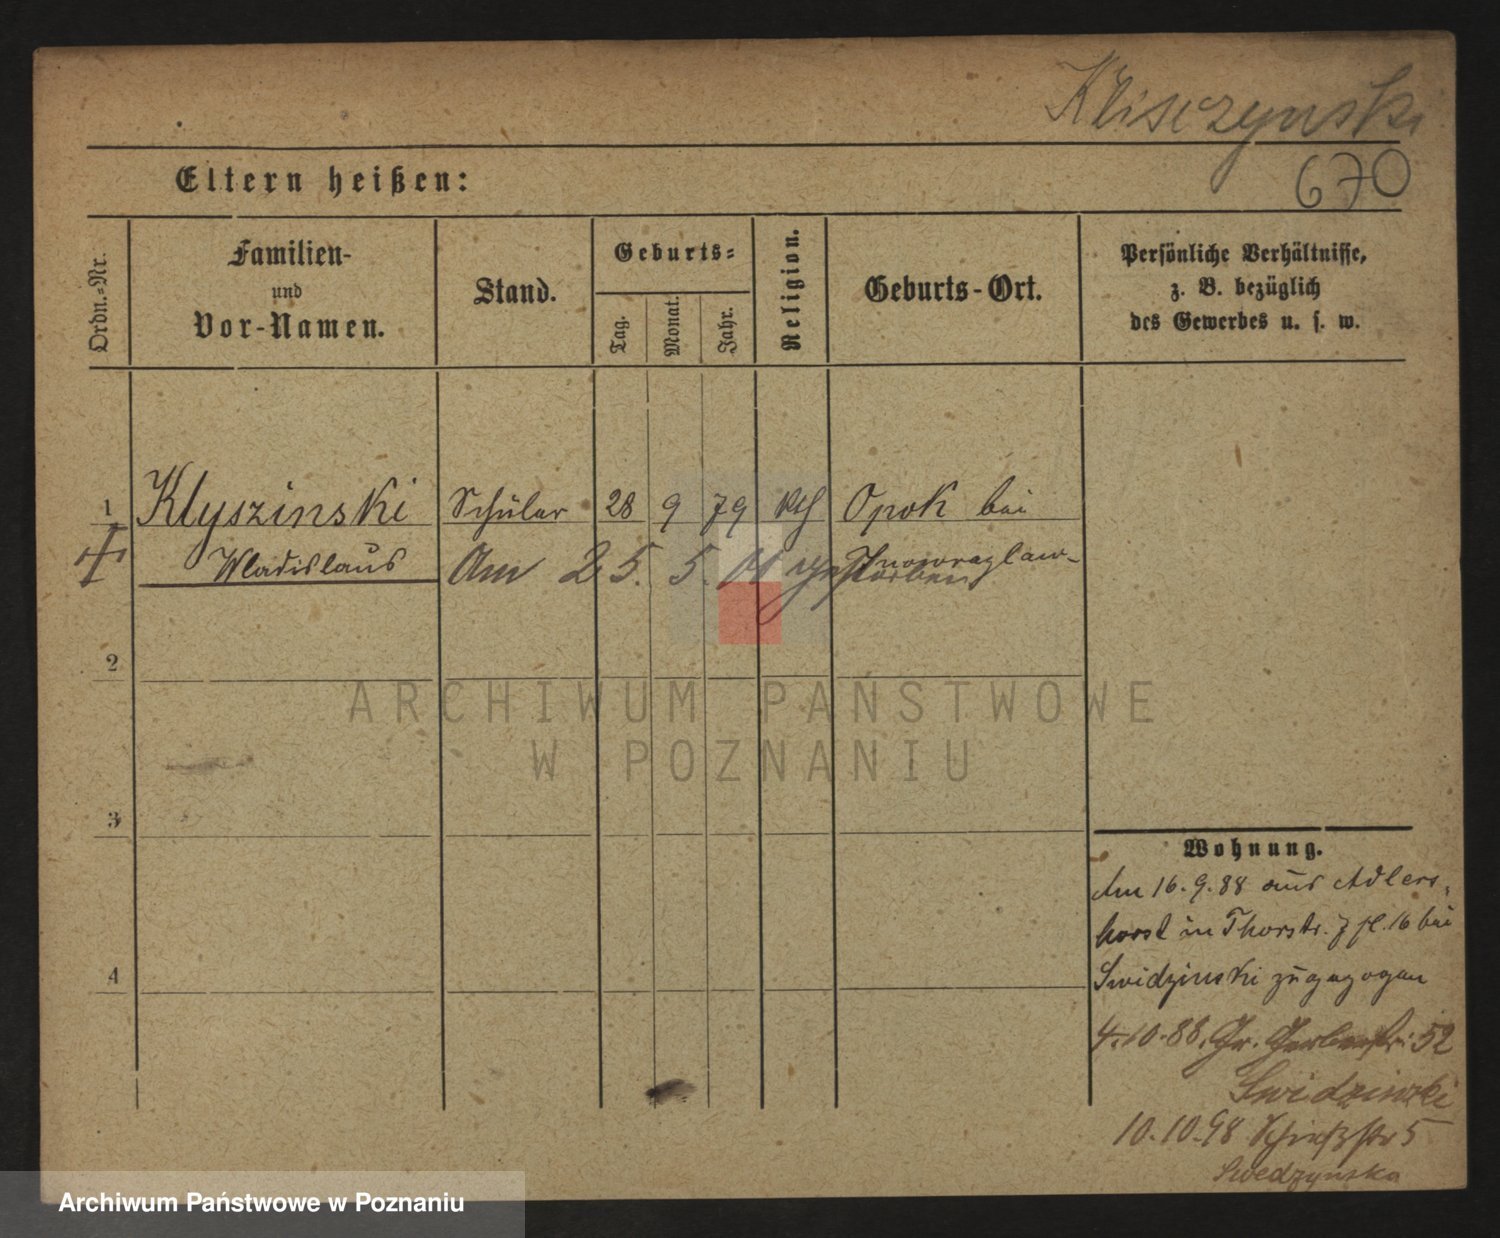 Klisczynski
670
Eltern heißen:
Ordn.-Nr.
Familien-
und
Vor-Namen.
Stand.
Geburts-
Tag.
Monat.
Jahr.
Religion.
Geburts-Ort.
Persönliche Verhältnisse,
z. B. bezüglich
des Gewerbes u. s. w.
1 Klyszinski Schüler 28 9 79 kth Opok bei
Wladislaus Inowrazlaw
Am 25. 5. 01 gestorben
2
ARCHIWUM PAŃSTWOWE
W POZNANIU
3
Wohnung.
Am 16.9.88 aus Adlers-
horst in Thorstr. 16 bei
Swidzinski zugezogen
4
4.10.88. Gr. Gerberstr. 52
Swidzinski
10.10.98 Schießstr 5
Swedzynska
Archiwum Państwowe w Poznaniu